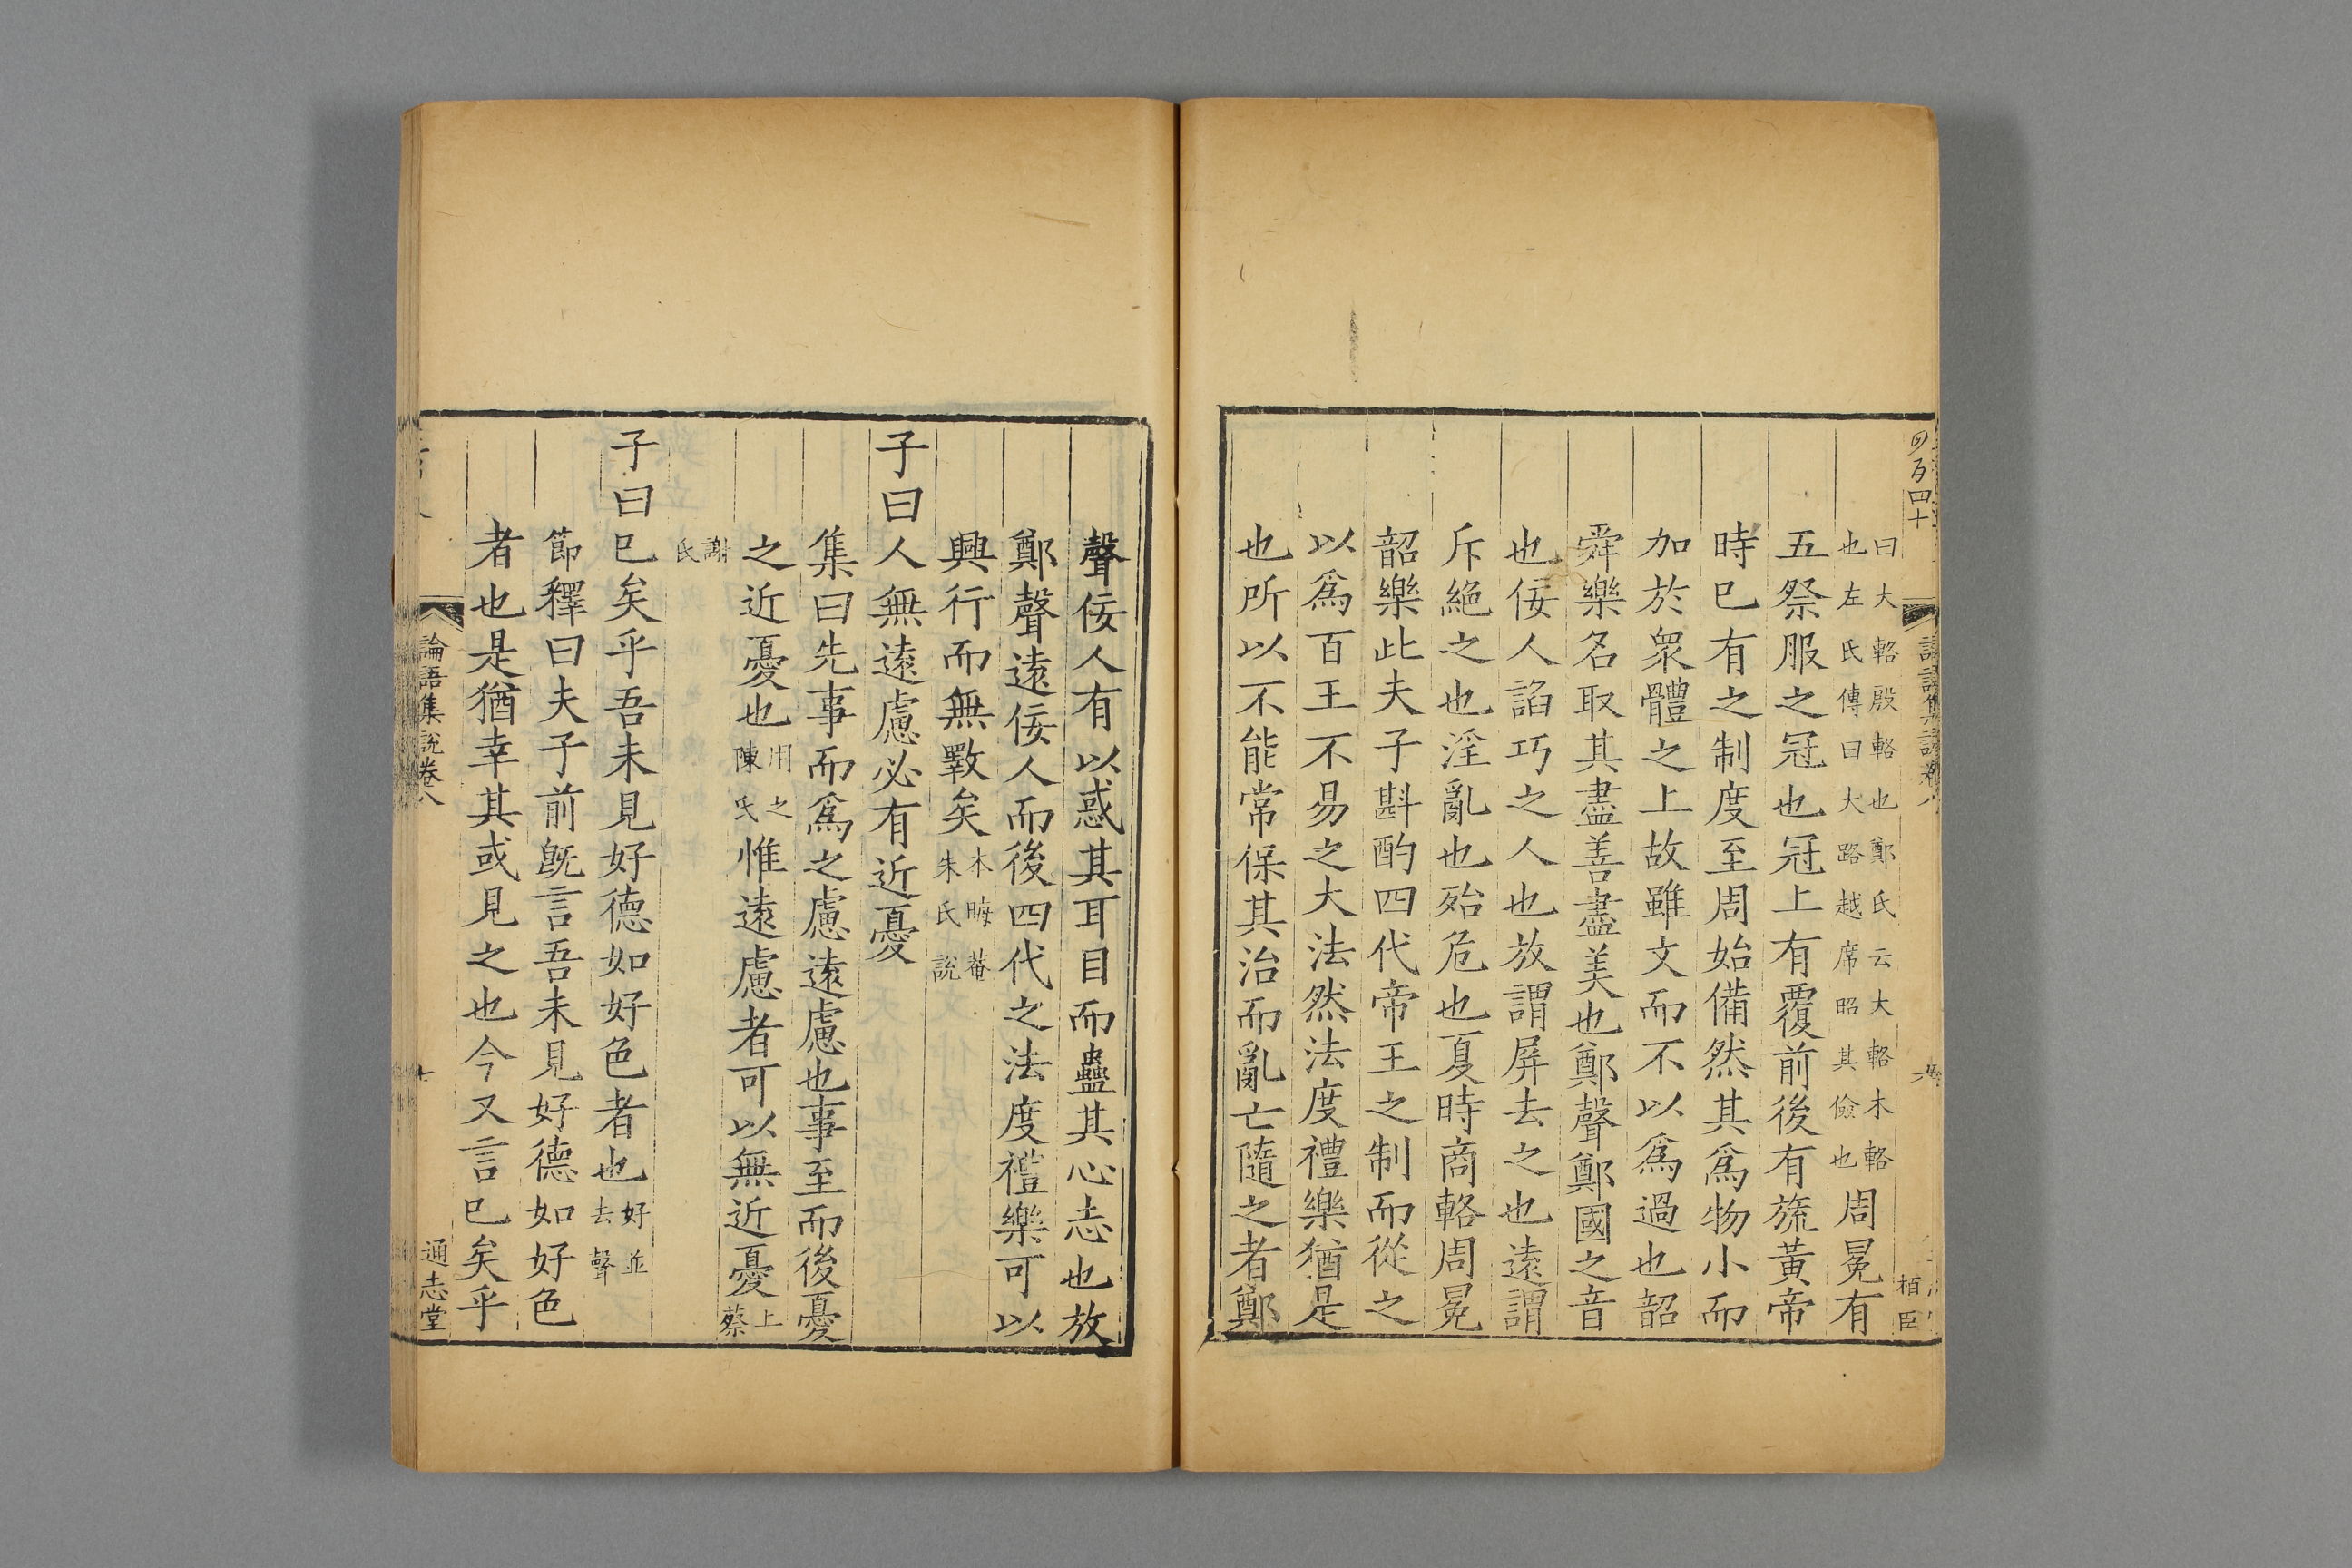 四百四十
栢臣
曰大輅殷輅也鄭氏云大輅木輅
也左氏傳曰大路越席昭其儉也
周冕有
五祭服之冠也冠上有覆前後有旒黃帝
時已有之制度至周始備然其爲物小而
加於衆體之上故雖文而不以爲過也韶
舜樂名取其盡善盡美也鄭聲鄭國之音
也佞人諂巧之人也放謂屏去之也遠謂
斥絕之也淫亂也殆危也夏時商輅周冕
韶樂此夫子斟酌四代帝王之制而從之
以爲百王不易之大法然法度禮樂猶是
也所以不能常保其治而亂亡隨之者鄭
聲佞人有以惑其耳目而蠱其心志也放
鄭聲遠佞人而後四代之法度禮樂可以
興行而無斁矣
木晦菴
朱氏說
子曰人無遠慮必有近憂
集曰先事而爲之慮遠慮也事至而後憂
之近憂也
用之
陳氏
惟遠慮者可以無近憂
上
蔡
謝
氏
子曰已矣乎吾未見好德如好色者也
好並
去聲
節釋曰夫子前旣言吾未見好德如好色
者也是猶幸其或見之也今又言已矣乎
論語集說卷八
通志堂